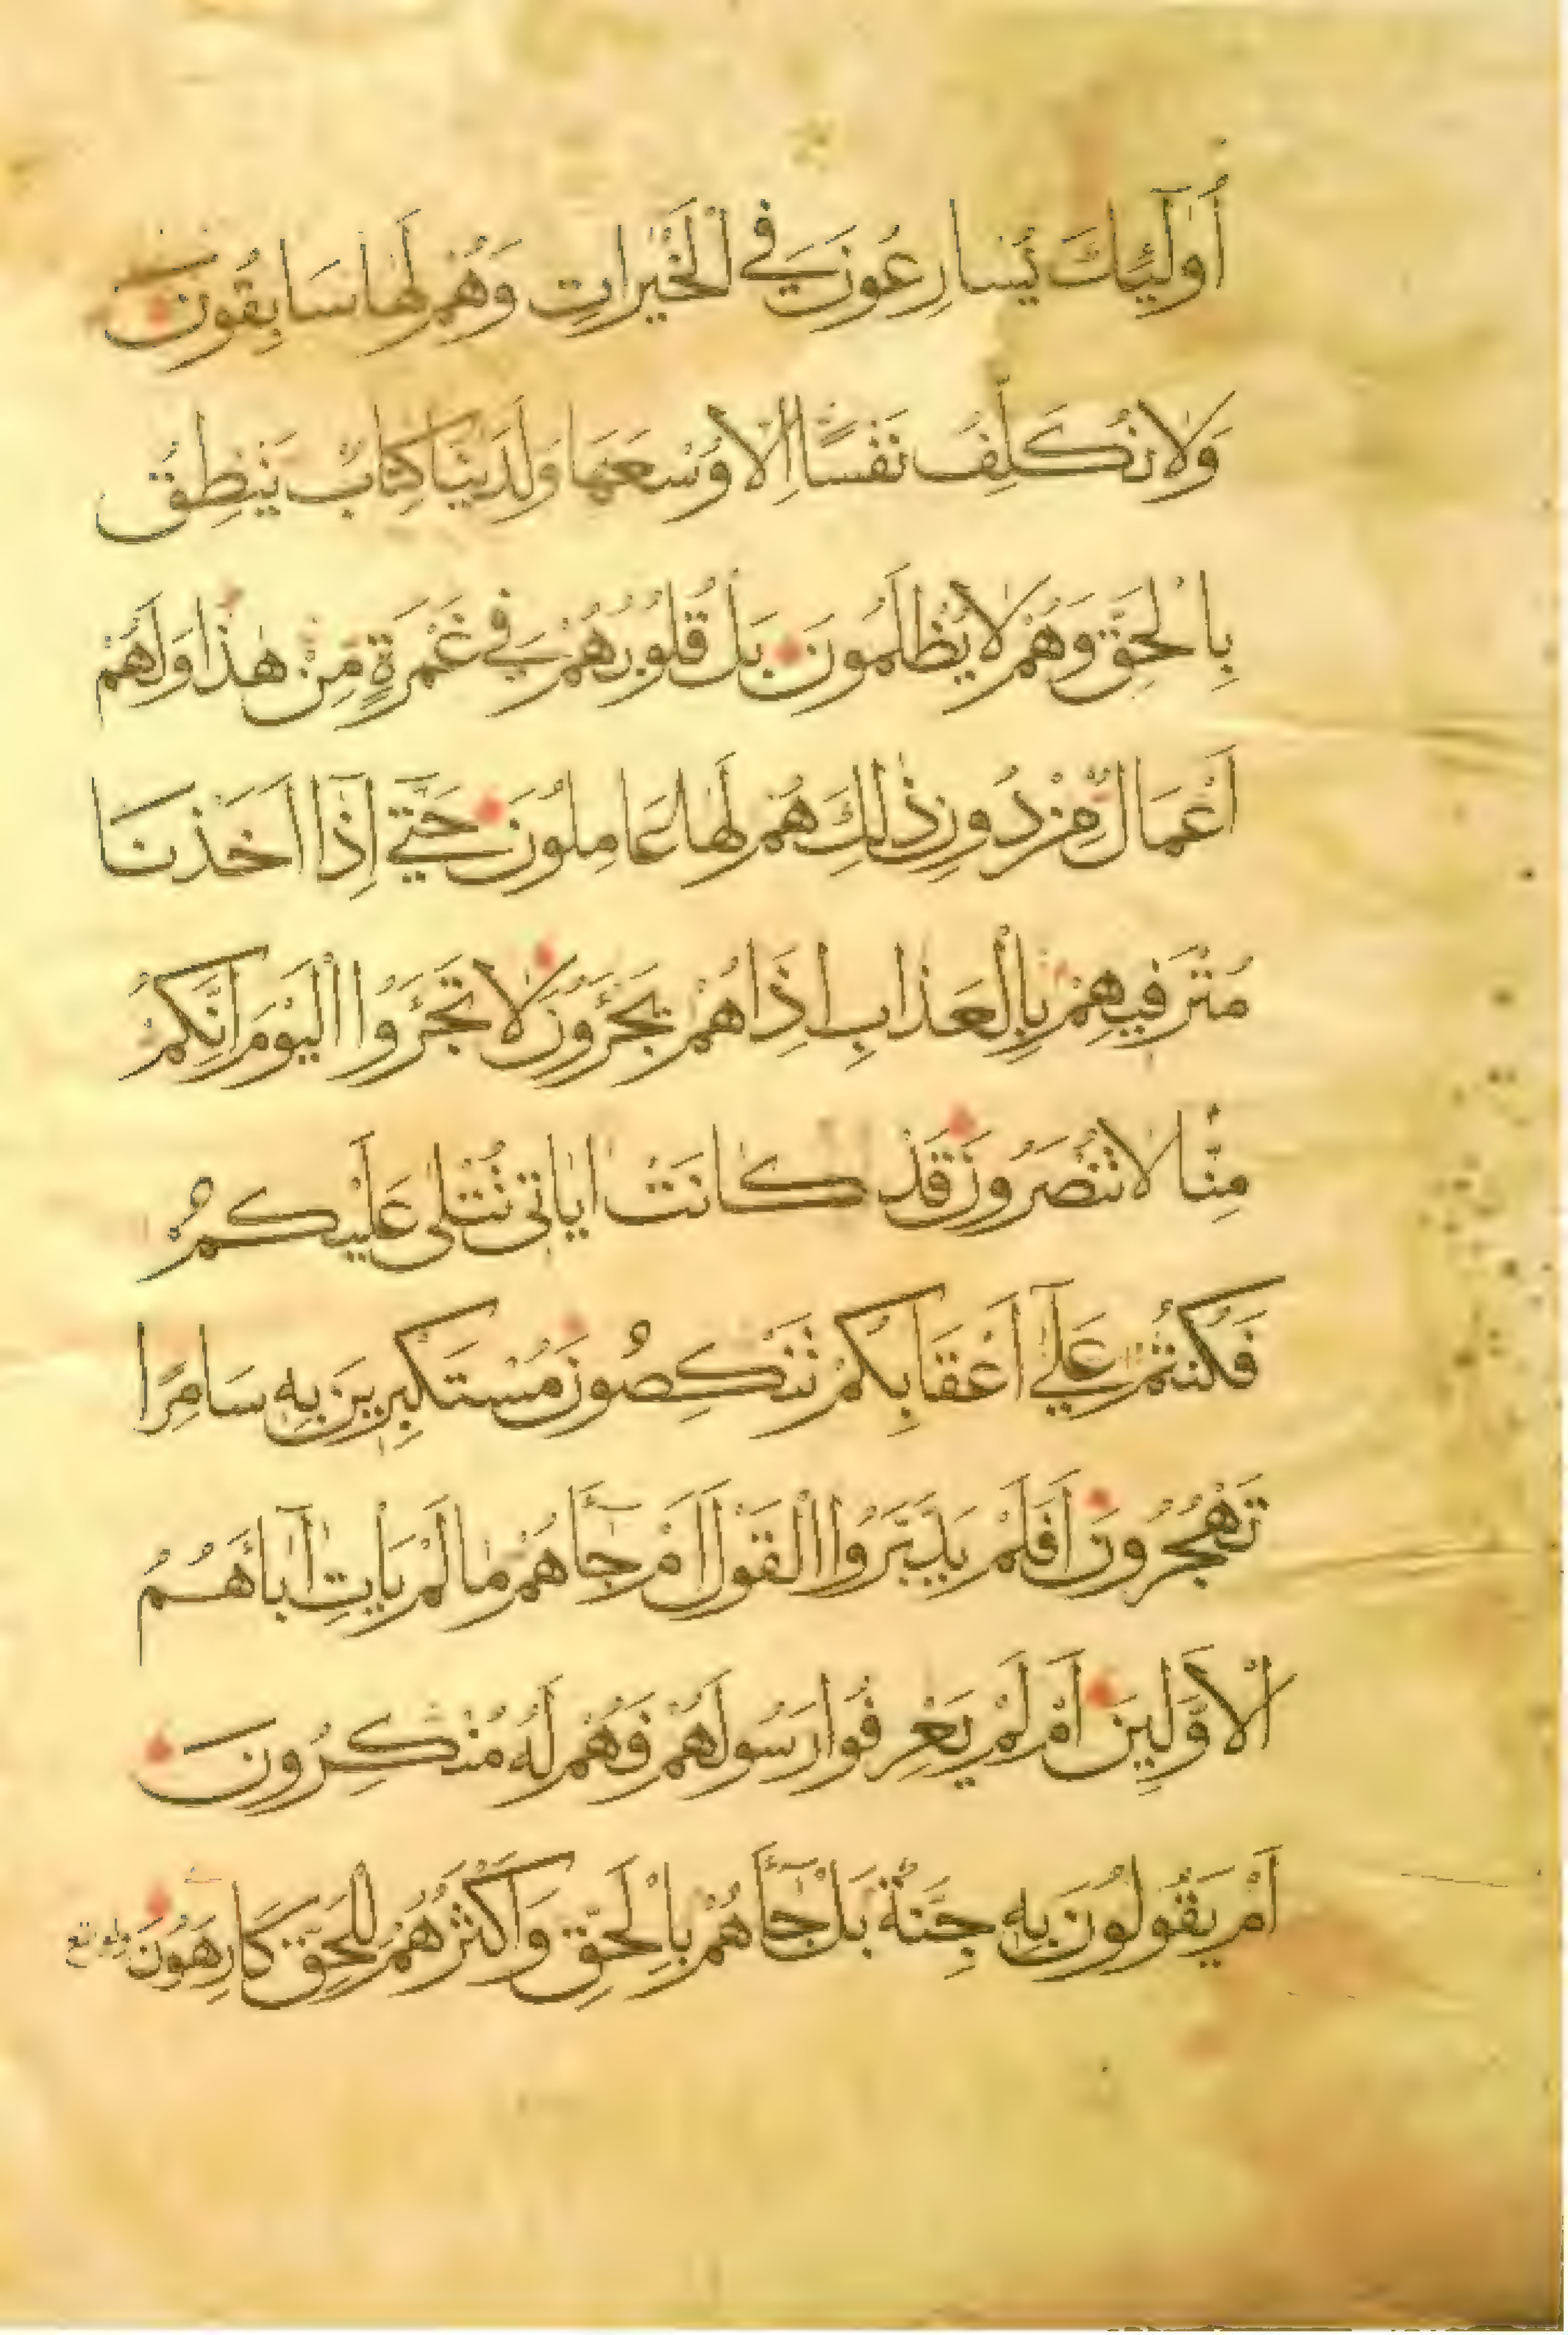 أُولَٰئِكَ يُسَارِعُونَ فِي الْخَيْرَاتِ وَهُمْ لَهَا سَابِقُونَ
وَلَا نُكَلِّفُ نَفْسًا إِلَّا وُسْعَهَا وَلَدَيْنَا كِتَابٌ يَنْطِقُ
بِالْحَقِّ وَهُمْ لَا يُظْلَمُونَ بَلْ قُلُوبُهُمْ فِي غَمْرَةٍ مِنْ هَٰذَا وَلَهُمْ
أَعْمَالٌ مِنْ دُونِ ذَٰلِكَ هُمْ لَهَا عَامِلُونَ حَتَّى إِذَا أَخَذْنَا
مُتْرَفِيهِمْ بِالْعَذَابِ اِذَا هُمْ يَجْئَرُونَ لَا تَجْئَرُوا الْيَوْمَ اِنَّكُمْ
مِنَّا لَا تُنْصَرُونَ قَدْ كَانَتْ اٰيَاتِي تُتْلَى عَلَيْكُمْ
فَكُنْتُمْ عَلَى أَعْقَابِكُمْ تَنْكِصُونَ مُسْتَكْبِرِينَ بِهِ سَامِرًا
تَهْجُرُونَ أَفَلَمْ يَدَّبَّرُوا الْقَوْلَ أَمْ جَآءَهُمْ مَا لَمْ يَأْتِ آبَاءَهُمُ
الْأَوَّلِينَ أَمْ لَمْ يَعْرِفُوا رَسُولَهُمْ فَهُمْ لَهُ مُنْكِرُونَ
أَمْ يَقُولُونَ بِهِ جِنَّةٌ بَلْ جَآءَهُمْ بِالْحَقِّ وَأَكْثَرُهُمْ لِلْحَقِّ كَارِهُونَ